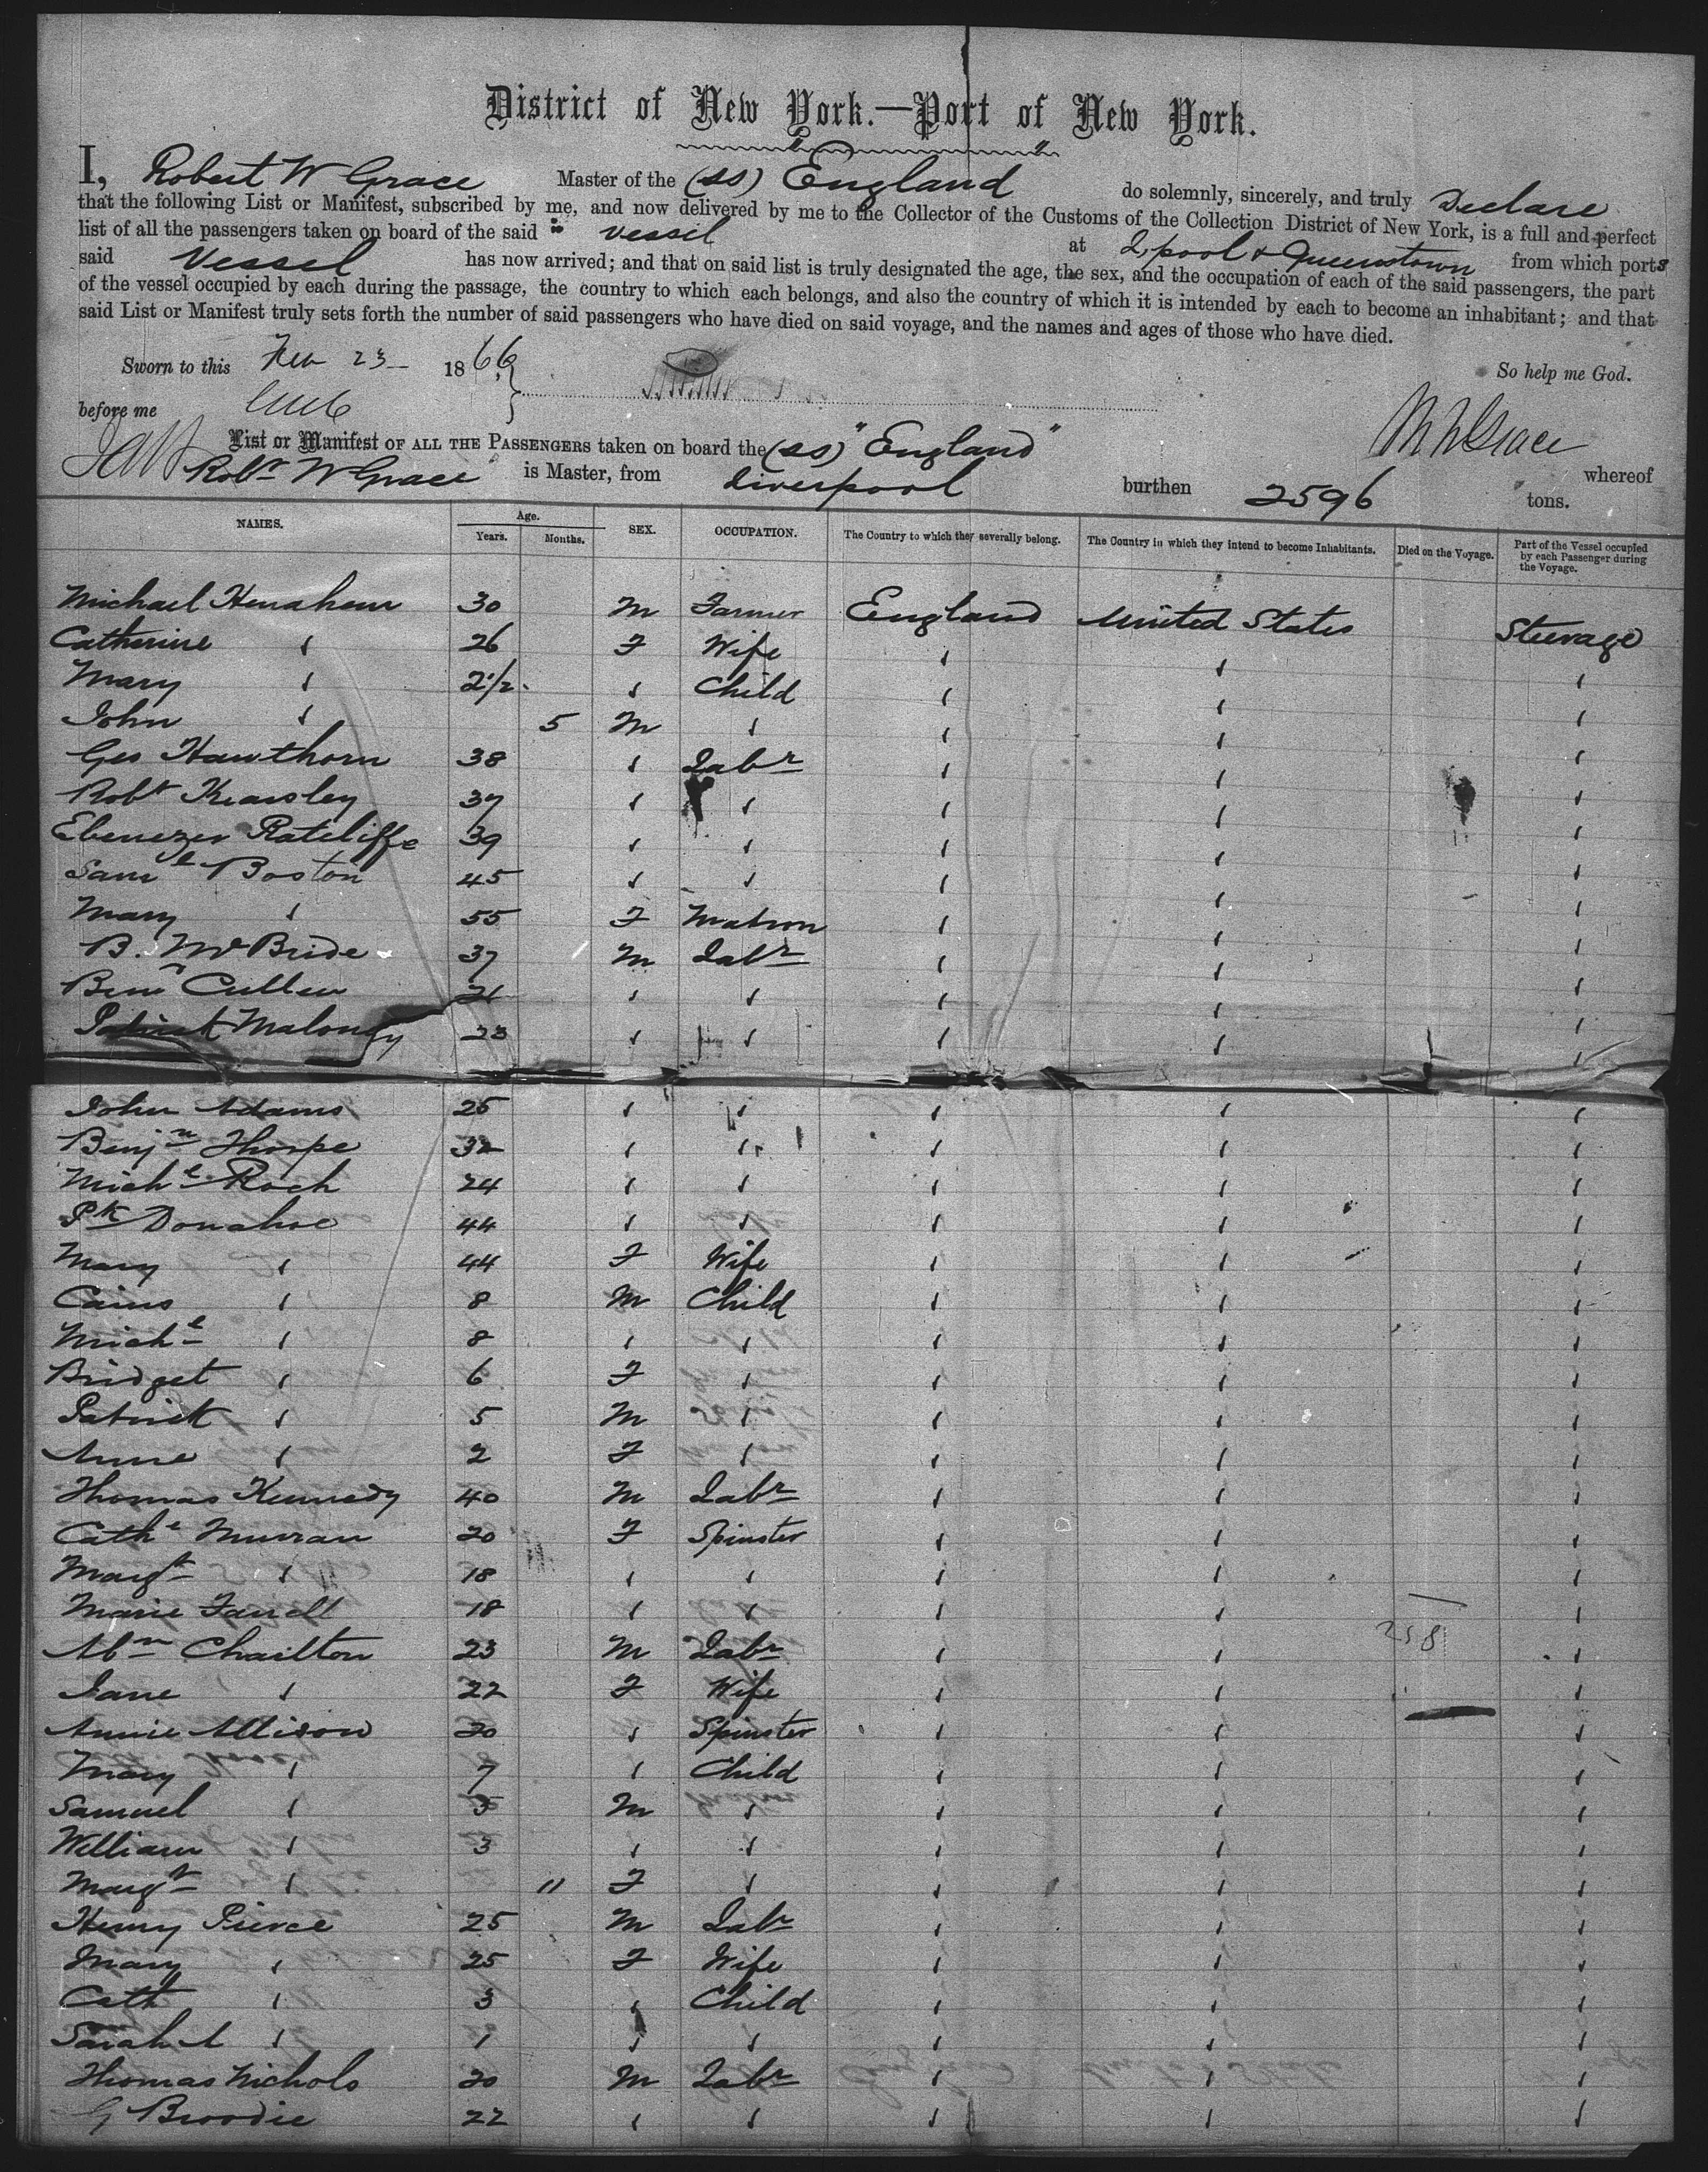 District of New York.—Port of New York.
I, Robert W Grace Master of the (ss) "England" do solemnly, sincerely, and truly Declare
that the following List or Manifest, subscribed by me, and now delivered by me to the Collector of the Customs of the Collection District of New York, is a full and perfect
list of all the passengers taken on board of the said vessel at L.pool & Queenstown from which ports
said Vessel has now arrived; and that on said list is truly designated the age, the sex, and the occupation of each of the said passengers, the part
of the vessel occupied by each during the passage, the country to which each belongs, and also the country of which it is intended by each to become an inhabitant; and that
said List or Manifest truly sets forth the number of said passengers who have died on said voyage, and the names and ages of those who have died.
Sworn to this 23 1866 So help me God.
before me
List or Manifest OF ALL THE PASSENGERS taken on board the (ss) "England" whereof
Robt W Grace is Master, from Liverpool burthen 2596 tons.
NAMES. Age. Years. Months. SEX. OCCUPATION. The Country to which they severally belong. The Country in which they intend to become Inhabitants. Died on the Voyage. Part of the Vessel occupied by each Passenger during the Voyage.
Michael 30 M Farmer England United States Steerage
Catherine " 26 F Wife " " "
Mary " 2 1/2 " Child " " "
John " 5 M " " " "
Geo Hawthorn 38 " Labr " " "
Robt Kearsley 37 " " " " "
Ebenezer Ratcliffe 39 " " " " "
Saml Boston 45 " " " " "
Mary " 55 F Matron " " "
B. McBride 37 M Labr " " "
Benn Cullen 21 " " " " "
Patrick Maloney 23 " " " " "
John Adams 25 " " " " "
Benjn Thorpe 32 " " " " "
Michl Roch 24 " " " " "
Pk Donahoe 44 " " " " "
Mary " 44 F Wife " " "
" 8 M Child " " "
Michl " 8 " " " " "
Bridget " 6 F " " " "
Patrick " 5 M " " " "
Anne " 2 F " " " "
Thomas Kennedy 40 M Labr " " "
Cathe Murran 20 F Spinster " " "
Margt " 18 " " " " "
Marie Farrell 18 " " " " "
Abm Chailton 23 M Labr " " 258 "
Jane " 22 F Wife " " "
Annie Allison 20 " Spinster " " "
Mary " 7 " Child " " "
Samuel " 5 M " " " "
William " 3 " " " " "
Margt " 11 F " " " "
Henry Pierce 25 M Labr " " "
Mary " 25 F Wife " " "
Cath " 3 " Child " " "
Sarah A " 1 " " " " "
Thomas Nichols 20 M Labr " " "
G Broodie 22 " " " " "